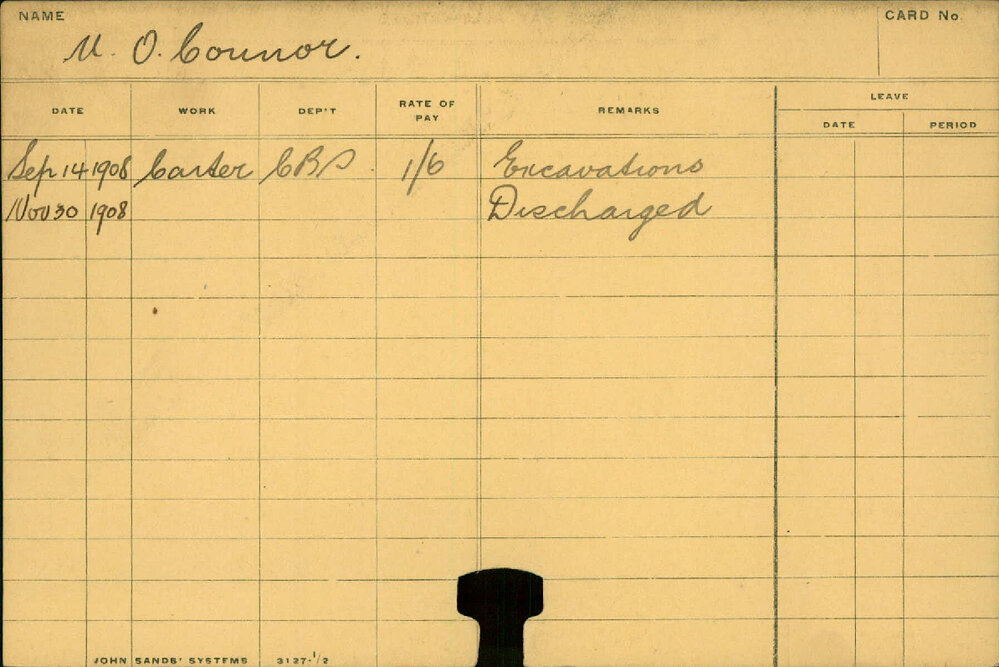 NAME CARD No.
M. O. Connor.
DATE WORK DEP'T RATE OF PAY REMARKS LEAVE
DATE PERIOD
Sep 14 1908 Carter CBS 1/6 Excavations
Nov 30 1908 Discharged
JOHN SANDS' SYSTEMS 3127-1/2